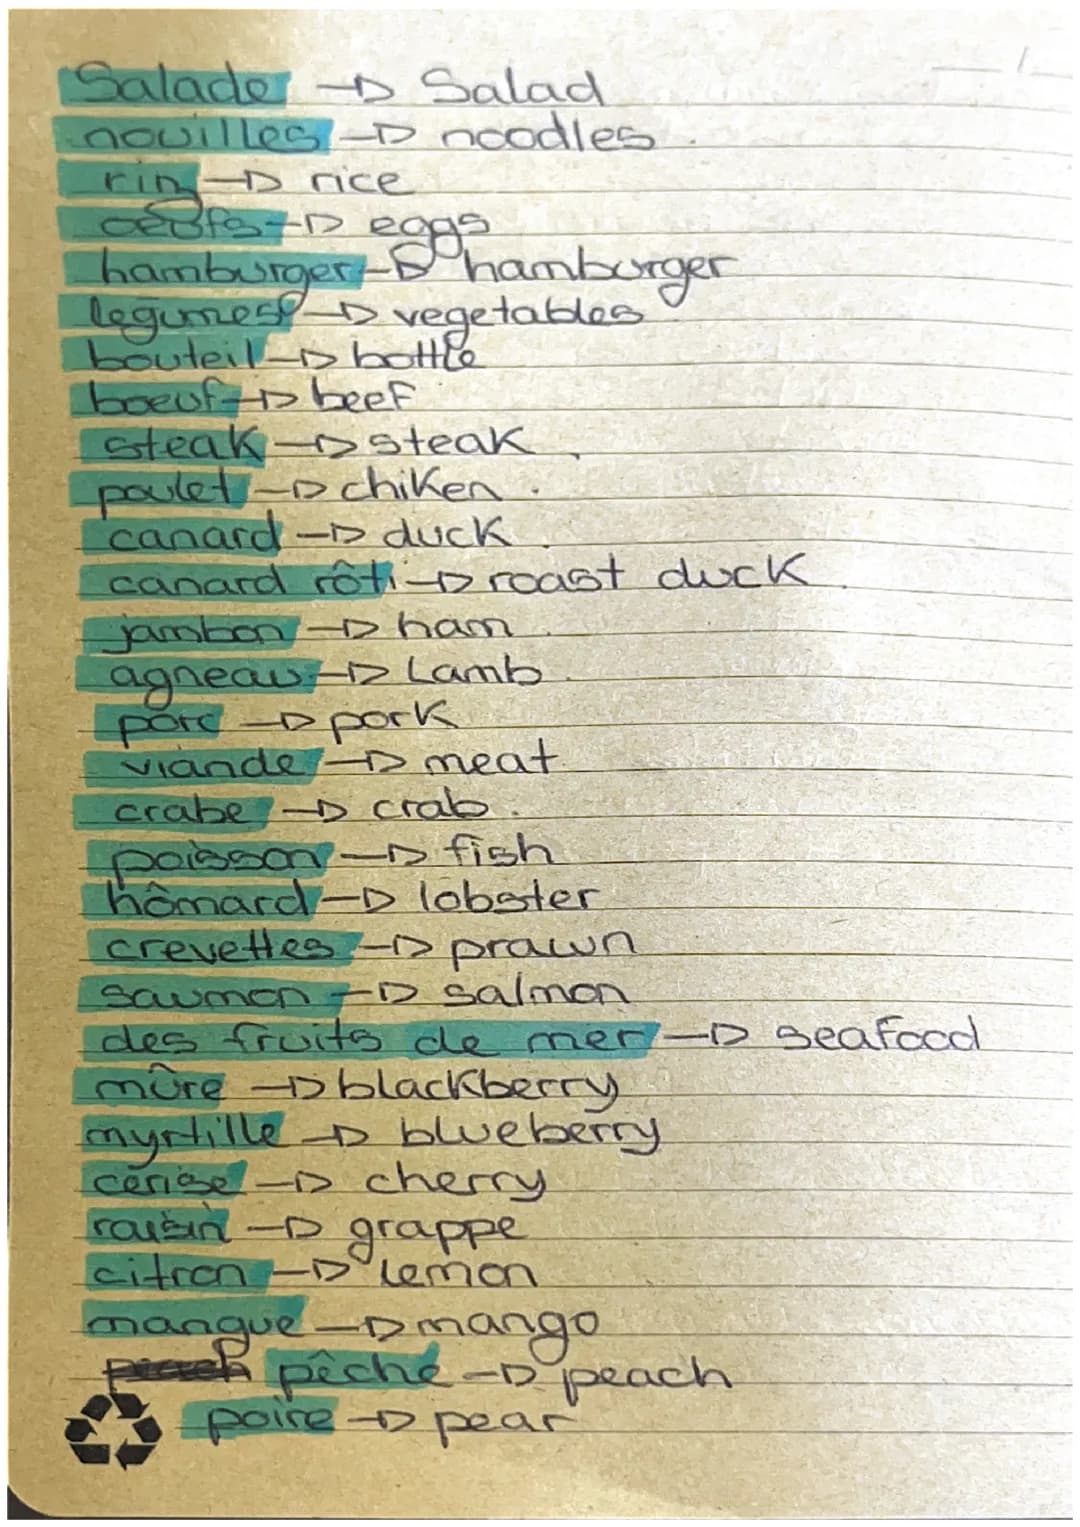 Salade → Salad
nouilles → noodles
riz → rice
oeufs → eggs
hamburger → hamburger
legumes → vegetables
bouteil → bottle
boeuf → beef
steak → steak
poulet → chiken
canard → duck
canard rôti → roast duck
jambon → ham
agneau → Lamb
porc → pork
viande → meat
crabe → crab
poisson → fish
hômard → lobster
crevettes → prawn
saumon → salmon
des fruits de mer → seafood
mûre → blackberry
myrtille → blueberry
cerise → cherry
raisin → grappe
citron → lemon
mangue → mango
pêche → peach
poire → pear